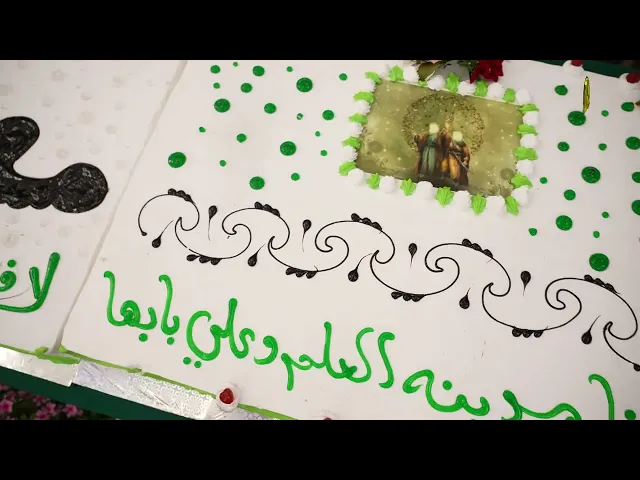 انا مدينه العلم وعلي بابها
لا ف